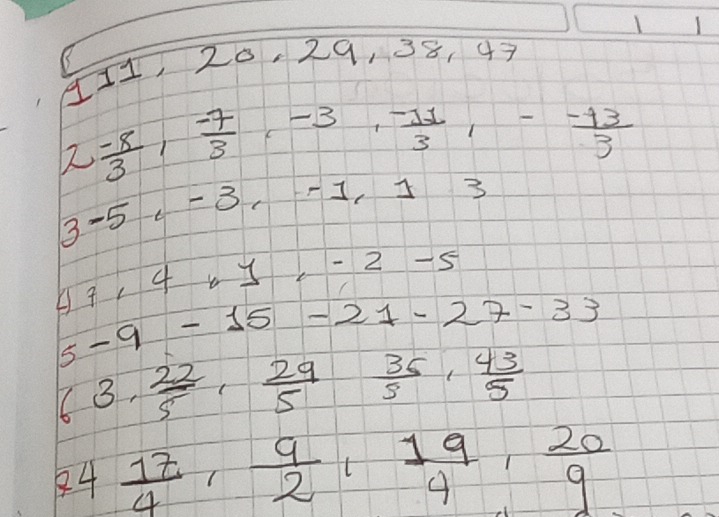 1 11, 20, 29, 38, 47
2 -8/3, -7/3, -3, -11/3, - -13/3
3 -5, -3, -1, 1 3
4 7, 4, 1, -2 -5
5 -9 -15 -21 -27 -33
6 3, 22/5, 29/5 36/5, 43/5
7 4 17/4, 9/2, 19/4, 20/9